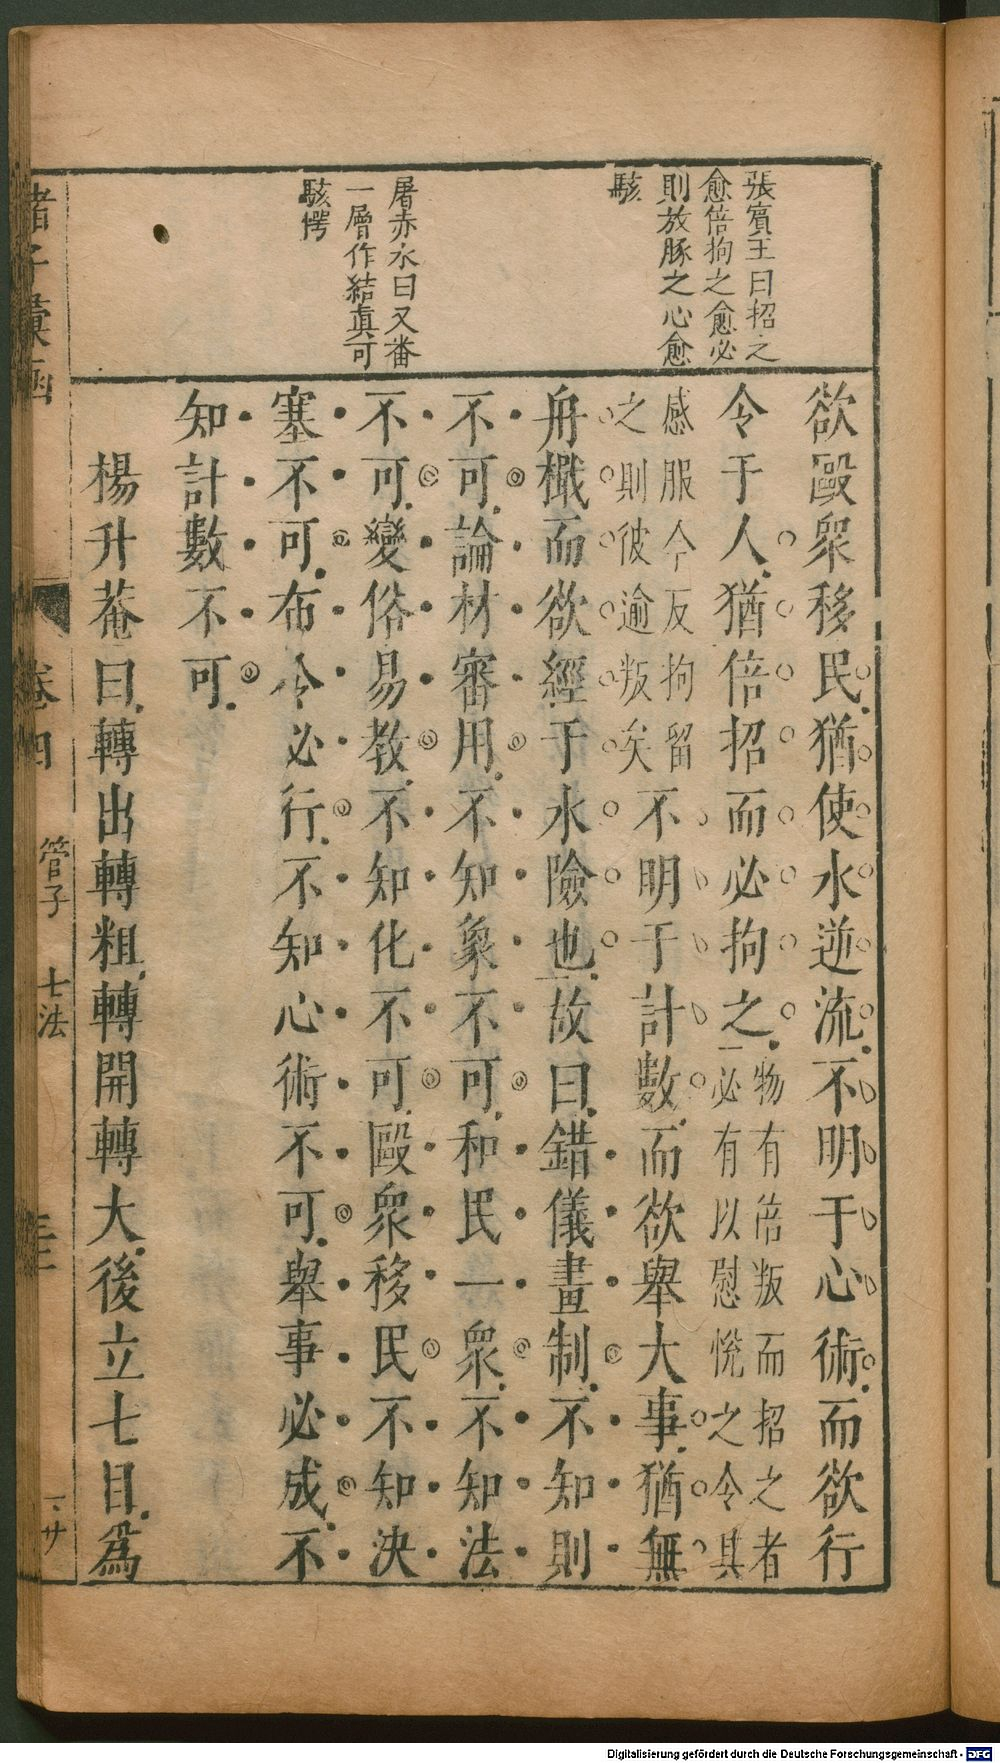 張賓王曰招之
愈倍拘之愈必
則放豚之心愈
駭
屠赤水曰又番
一層作結真可
駭愕
欲毆衆移民猶使水逆流不明于心術而欲行
令于人猶倍招而必拘之
物有倍叛而招之者
必有以慰悅之令其
感服今反拘留
之則彼逾叛矣
不明于計數而欲舉大事猶無
舟檝而欲經于水險也故曰錯儀畫制不知則
不可論材審用不知象不可和民一衆不知法
不可變俗易教不知化不可毆衆移民不知決
塞不可布令必行不知心術不可舉事必成不
知計數不可
楊升菴曰轉出轉粗轉開轉大後立七目爲
諸子彙函
卷四
管子
七法
Digitalisierung gefördert durch die Deutsche Forschungsgemeinschaft - DFG